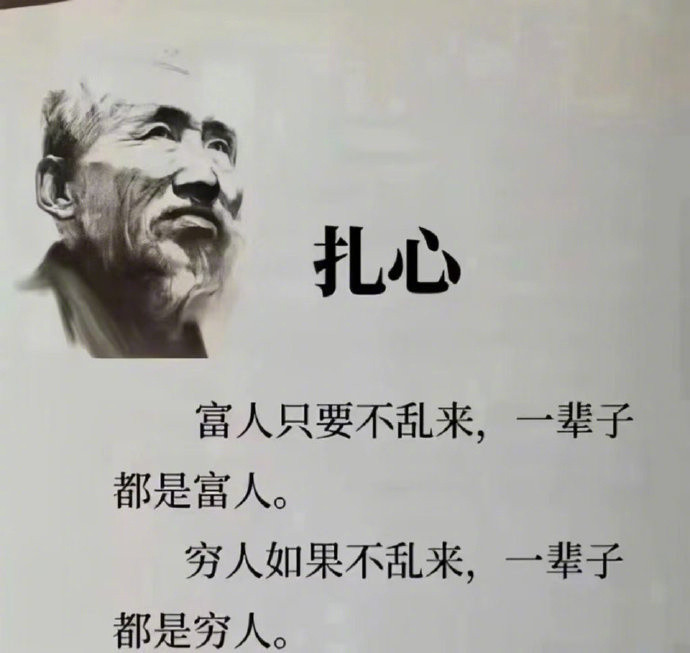 扎心
富人只要不乱来，一辈子
都是富人。
穷人如果不乱来，一辈子
都是穷人。